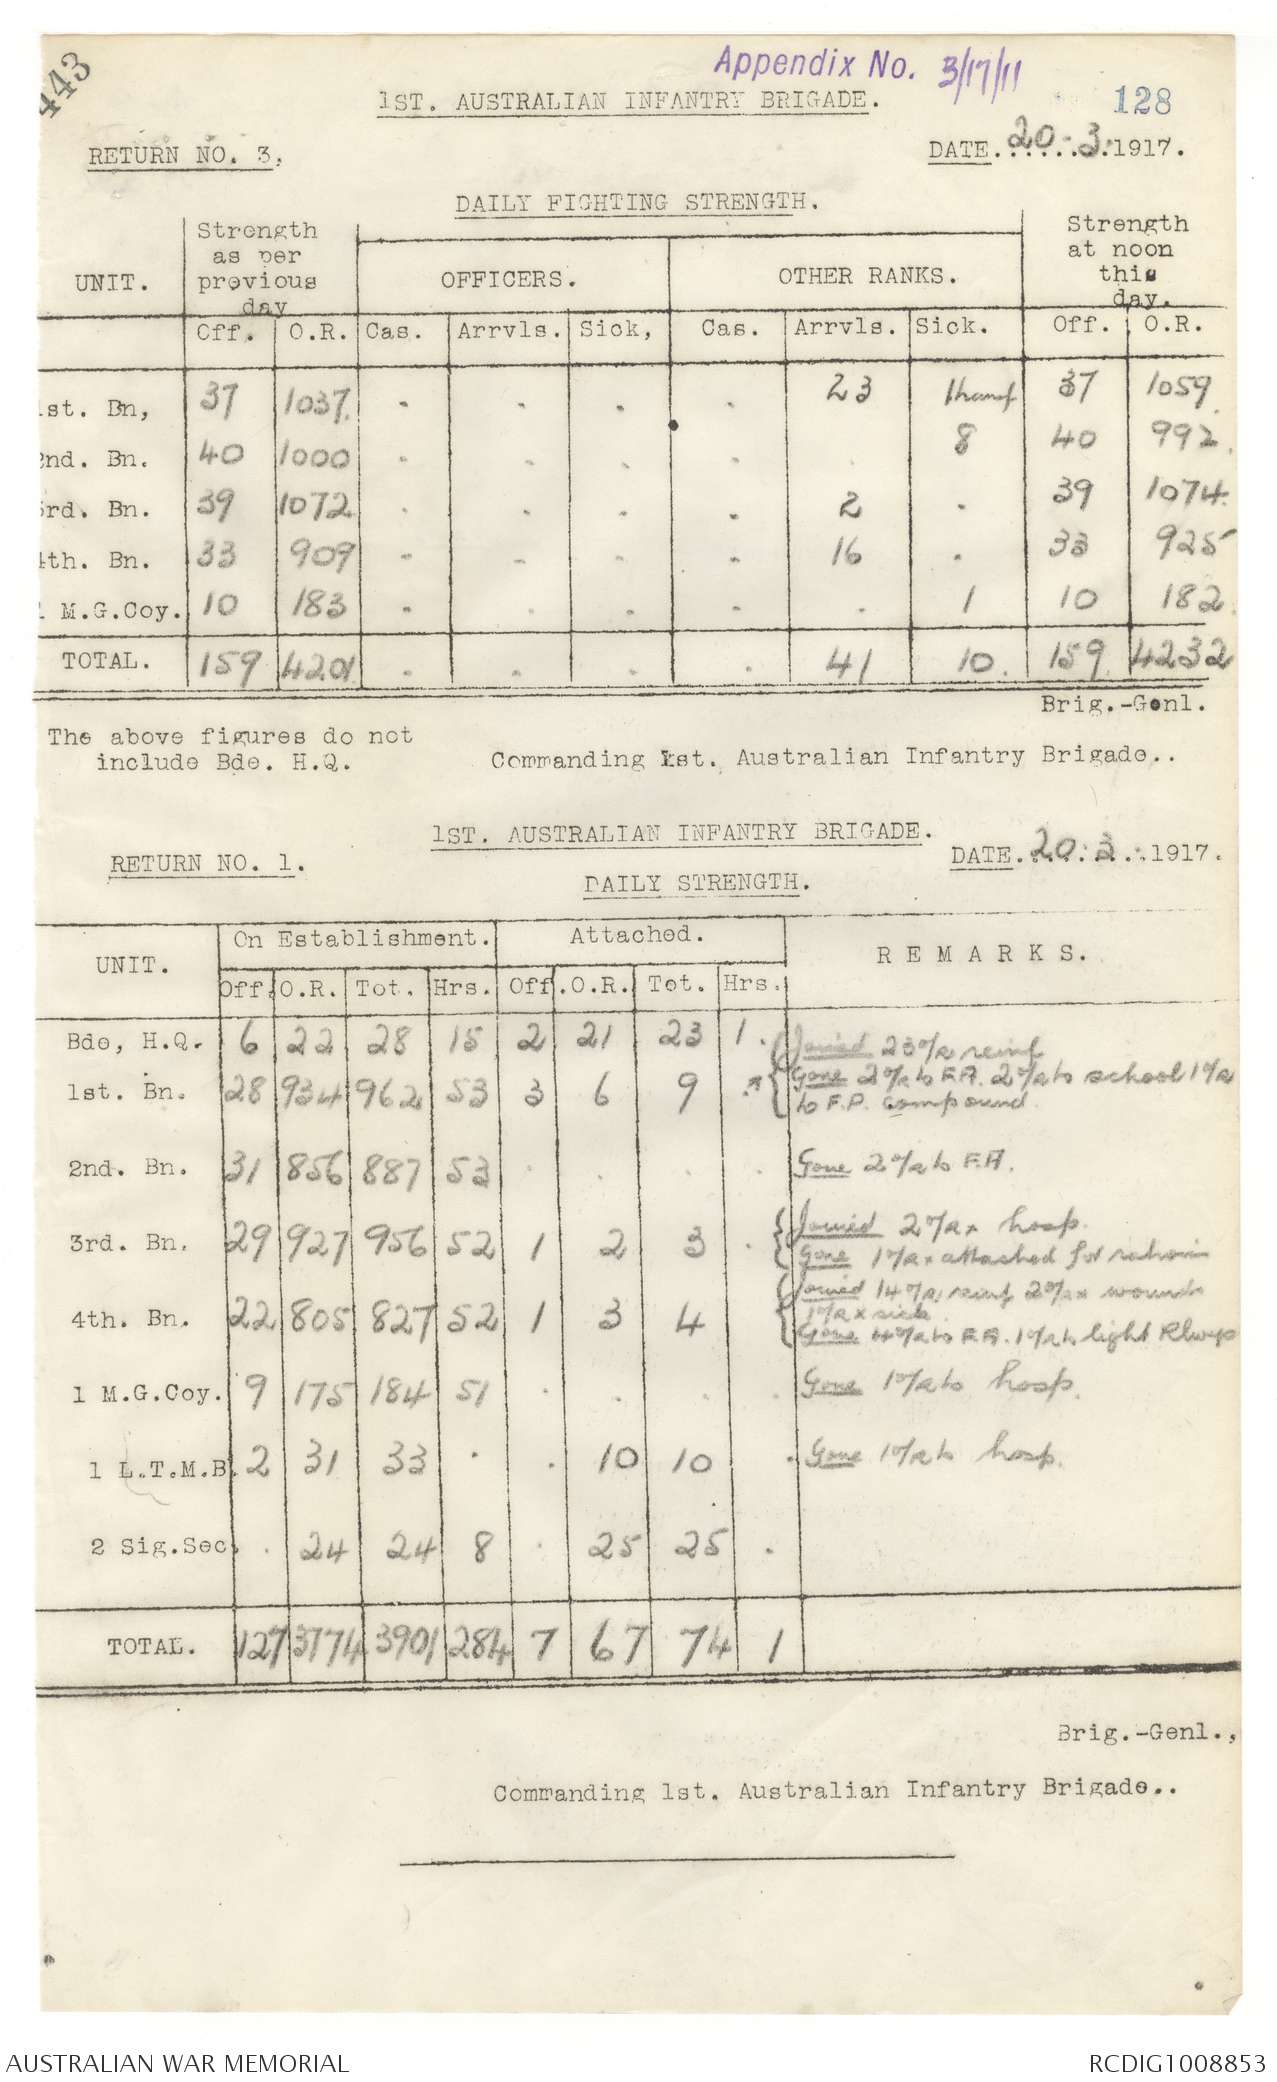 443
Appendix No. 3/17/11
1ST. AUSTRALIAN INFANTRY BRIGADE.
128
RETURN NO. 3.
DATE. 20.3.1917.
DAILY FIGHTING STRENGTH.
UNIT. Strength as per previous day OFFICERS. OTHER RANKS. Strength at noon this day.
Off. O.R. Cas. Arrvls. Sick, Cas. Arrvls. Sick. Off. O.R.
1st. Bn, 37 1037. . . . . 23 1 transf 37 1059.
2nd. Bn. 40 1000 . . . . . 8 40 992.
3rd. Bn. 39 1072 . . . . 2 . 39 1074.
4th. Bn. 33 909 . . . . 16 . 33 925
1 M.G.Coy. 10 183 . . . . . 1 10 182.
TOTAL. 159 4201 . . . . 41 10. 159. 4232
Brig.-Genl.
The above figures do not
include Bde. H.Q.
Commanding 1st. Australian Infantry Brigade..
1ST. AUSTRALIAN INFANTRY BRIGADE.
RETURN NO. 1.
DATE. 20.3.1917.
DAILY STRENGTH.
UNIT. On Establishment. Attached. REMARKS.
Off. O.R. Tot. Hrs. Off. O.R. Tot. Hrs.
Bde, H.Q. 6 22 28 15 2 21 23 1.
1st. Bn. 28 934 962 53 3 6 9 . Joined 23 o/r reinf
Gone 2 o/r to F.A. 2 o/r to school 1 o/r
to F.P. compound.
2nd. Bn. 31 856 887 53 . . . . Gone 2 o/r to F.A.
3rd. Bn. 29 927 956 52 1 2 3 . Joined 2 o/r x hosp.
Gone 1 o/r x attached for rations
4th. Bn. 22 805 827 52 1 3 4 Joined 14 o/r reinf 2 o/r x wounds
1 o/r x sick.
Gone 4 o/r to F.A. 1 o/r to light Rlways
1 M.G.Coy. 9 175 184 51 . . . . Gone 1 o/r to hosp.
1 L.T.M.B. 2 31 33 . . 10 10 . Gone 1 o/r to hosp.
2 Sig.Sec. . 24 24 8 . 25 25 .
TOTAL. 127 3774 3901 284 7 67 74 1
Brig.-Genl.,
Commanding 1st. Australian Infantry Brigade..
AUSTRALIAN WAR MEMORIAL
RCDIG1008853